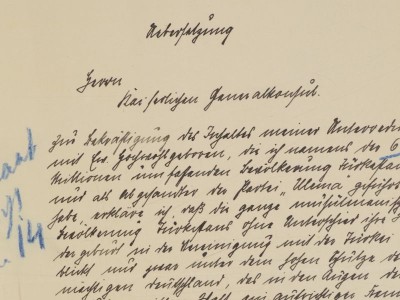 Uebersetzung
Herrn
Kaiserlichen Generalkonsul.
Zur Bekräftigung des Inhaltes meiner Unterreden
mit Ew. Hochwohlgeboren, die ich namens der 6
Millionen umfassenden Bevölkerung Türkestans
und als Abgesandter der Partei „Ulema" geführt
habe, erkläre ich, daß die ganze muhammedanische
Bevölkerung Türkestans ohne Unterschied ihre
in der Vereinigung mit der Türkei
blickt und zwar unter dem hohen Schutze des
mächtigen Deutschland, das in den Augen der